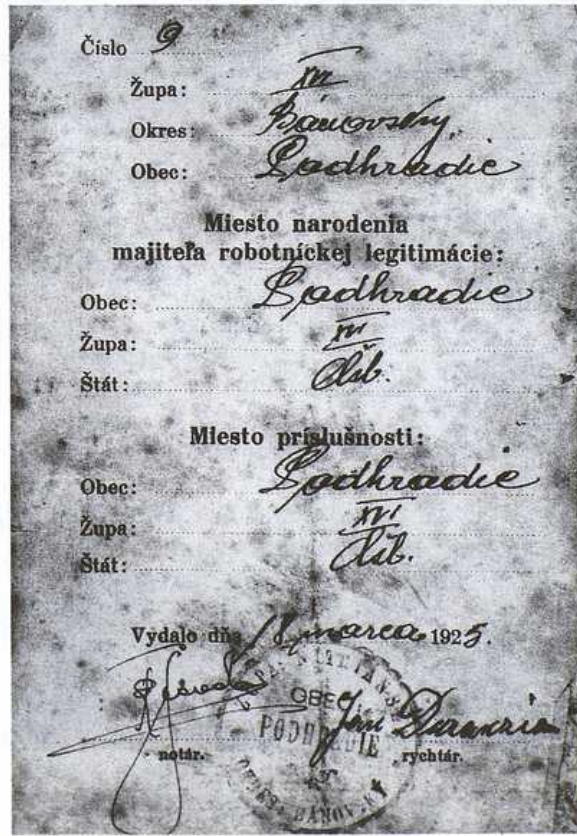 Číslo 9
Župa: XVI
Okres: Bánovský
Obec: Podhradie
Miesto narodenia
majiteľa robotníckej legitimácie:
Obec: Podhradie
Župa: XVI
Štát: čsl.
Miesto príslušnosti:
Obec: Podhradie
Župa: XVI
Štát: čsl.
Vydalo dňa marca 1925.
OBEC
PODHRADIE
Ján
notár. rychtár.